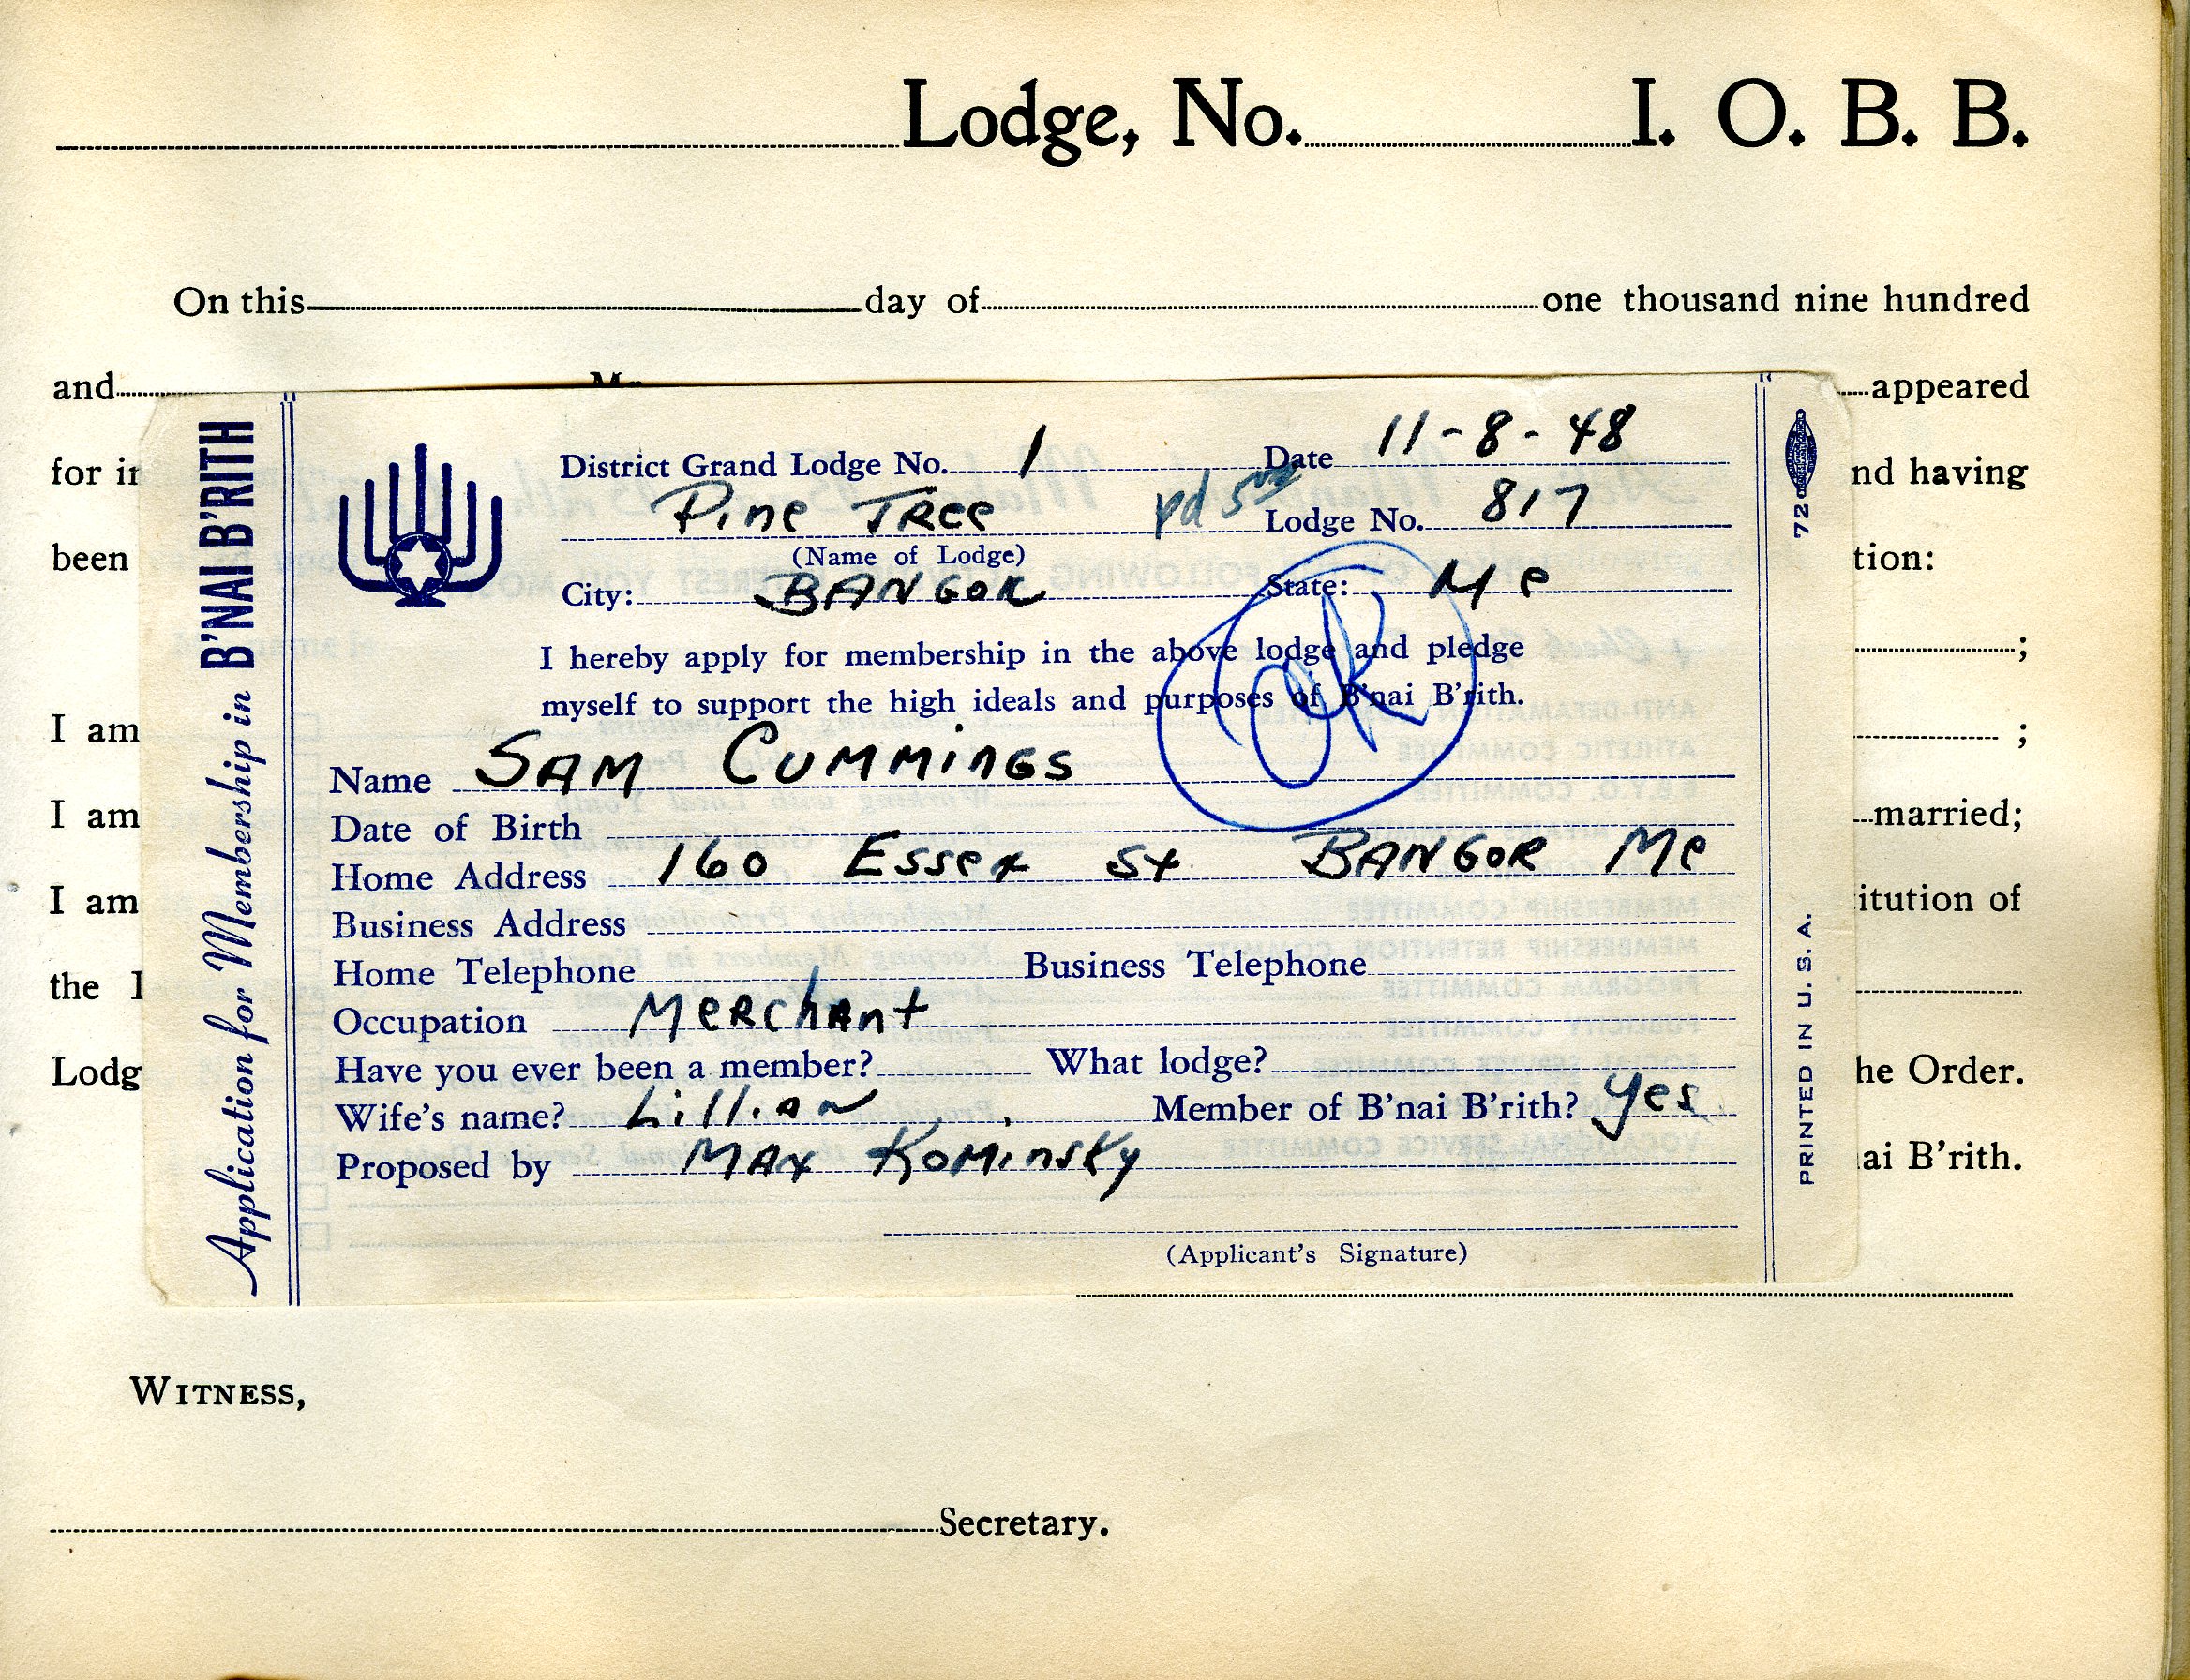 Lodge, No. I. O. B. B.
On this day of one thousand nine hundred
and appeared
for nd having
been tion:
;
I am ;
I am married;
I am itution of
the I
Lodg he Order.
ai B'rith.
Application for Membership in B'NAI B'RITH
District Grand Lodge No. 1 Date 11-8-48
Pine Tree pd 5 Lodge No. 817
(Name of Lodge)
City: BANGOR State: Me
I hereby apply for membership in the above lodge and pledge
myself to support the high ideals and purposes of B'nai B'rith.
OK
Name SAM CUMMINGS
Date of Birth
Home Address 160 Essex St BANGOR Me
Business Address
Home Telephone Business Telephone
Occupation Merchant
Have you ever been a member? What lodge?
Wife's name? Lillian Member of B'nai B'rith? yes
Proposed by MAX KOMINSKY
(Applicant's Signature)
72
PRINTED IN U. S. A.
WITNESS,
Secretary.